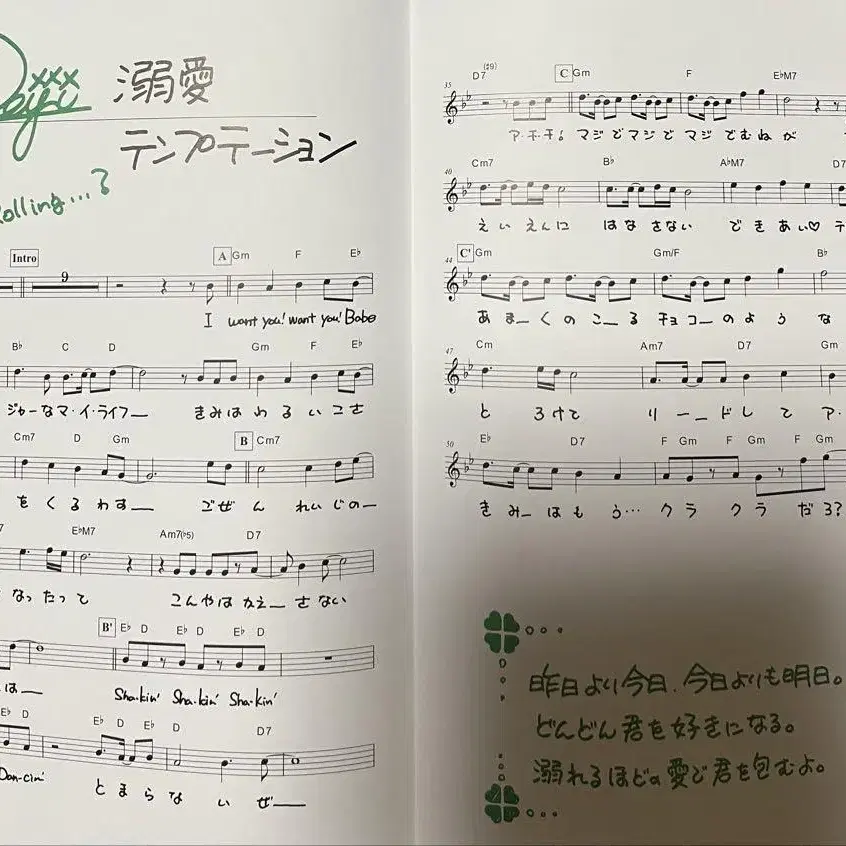 溺愛
テンプテーション
Rolling...?
Intro
9
A Gm F E♭
I want you! want you! Babe
B♭ C D Gm F E♭
ジャーなマ・イ・ライフー きみはわるいこさ
Cm7 D Gm B Cm7
をくるわすー ごぜんれいじのー
7 E♭M7 Am7(♭5) D7
なったって こんやはかえーさない
B' E♭ D E♭ D E♭ D
はー Sha-kin' Sha-kin' Sha-kin'
E♭ D E♭ D E♭ D D7
Dan-cin' とまらないぜー
35 D7(♯9) C Gm F E♭M7
ア・チ・チ! マジでマジでマジでむねが
40 Cm7 B♭ A♭M7 D7
えいえんに はなさない できあい♡テ
44 C' Gm Gm/F B♭
あまーくのこーるチョコーのような
47 Cm Am7 D7 Gm
とろけて リーードして ア・
50 E♭ D7 F Gm F Gm F Gm
きみーはもう… クラクラだろ?
昨日より今日、今日よりも明日。
どんどん君を好きになる。
溺れるほどの愛で君を包むよ。